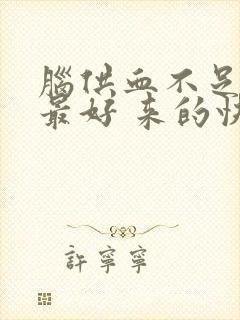 腦供血不足
最好来的快
許寧寧